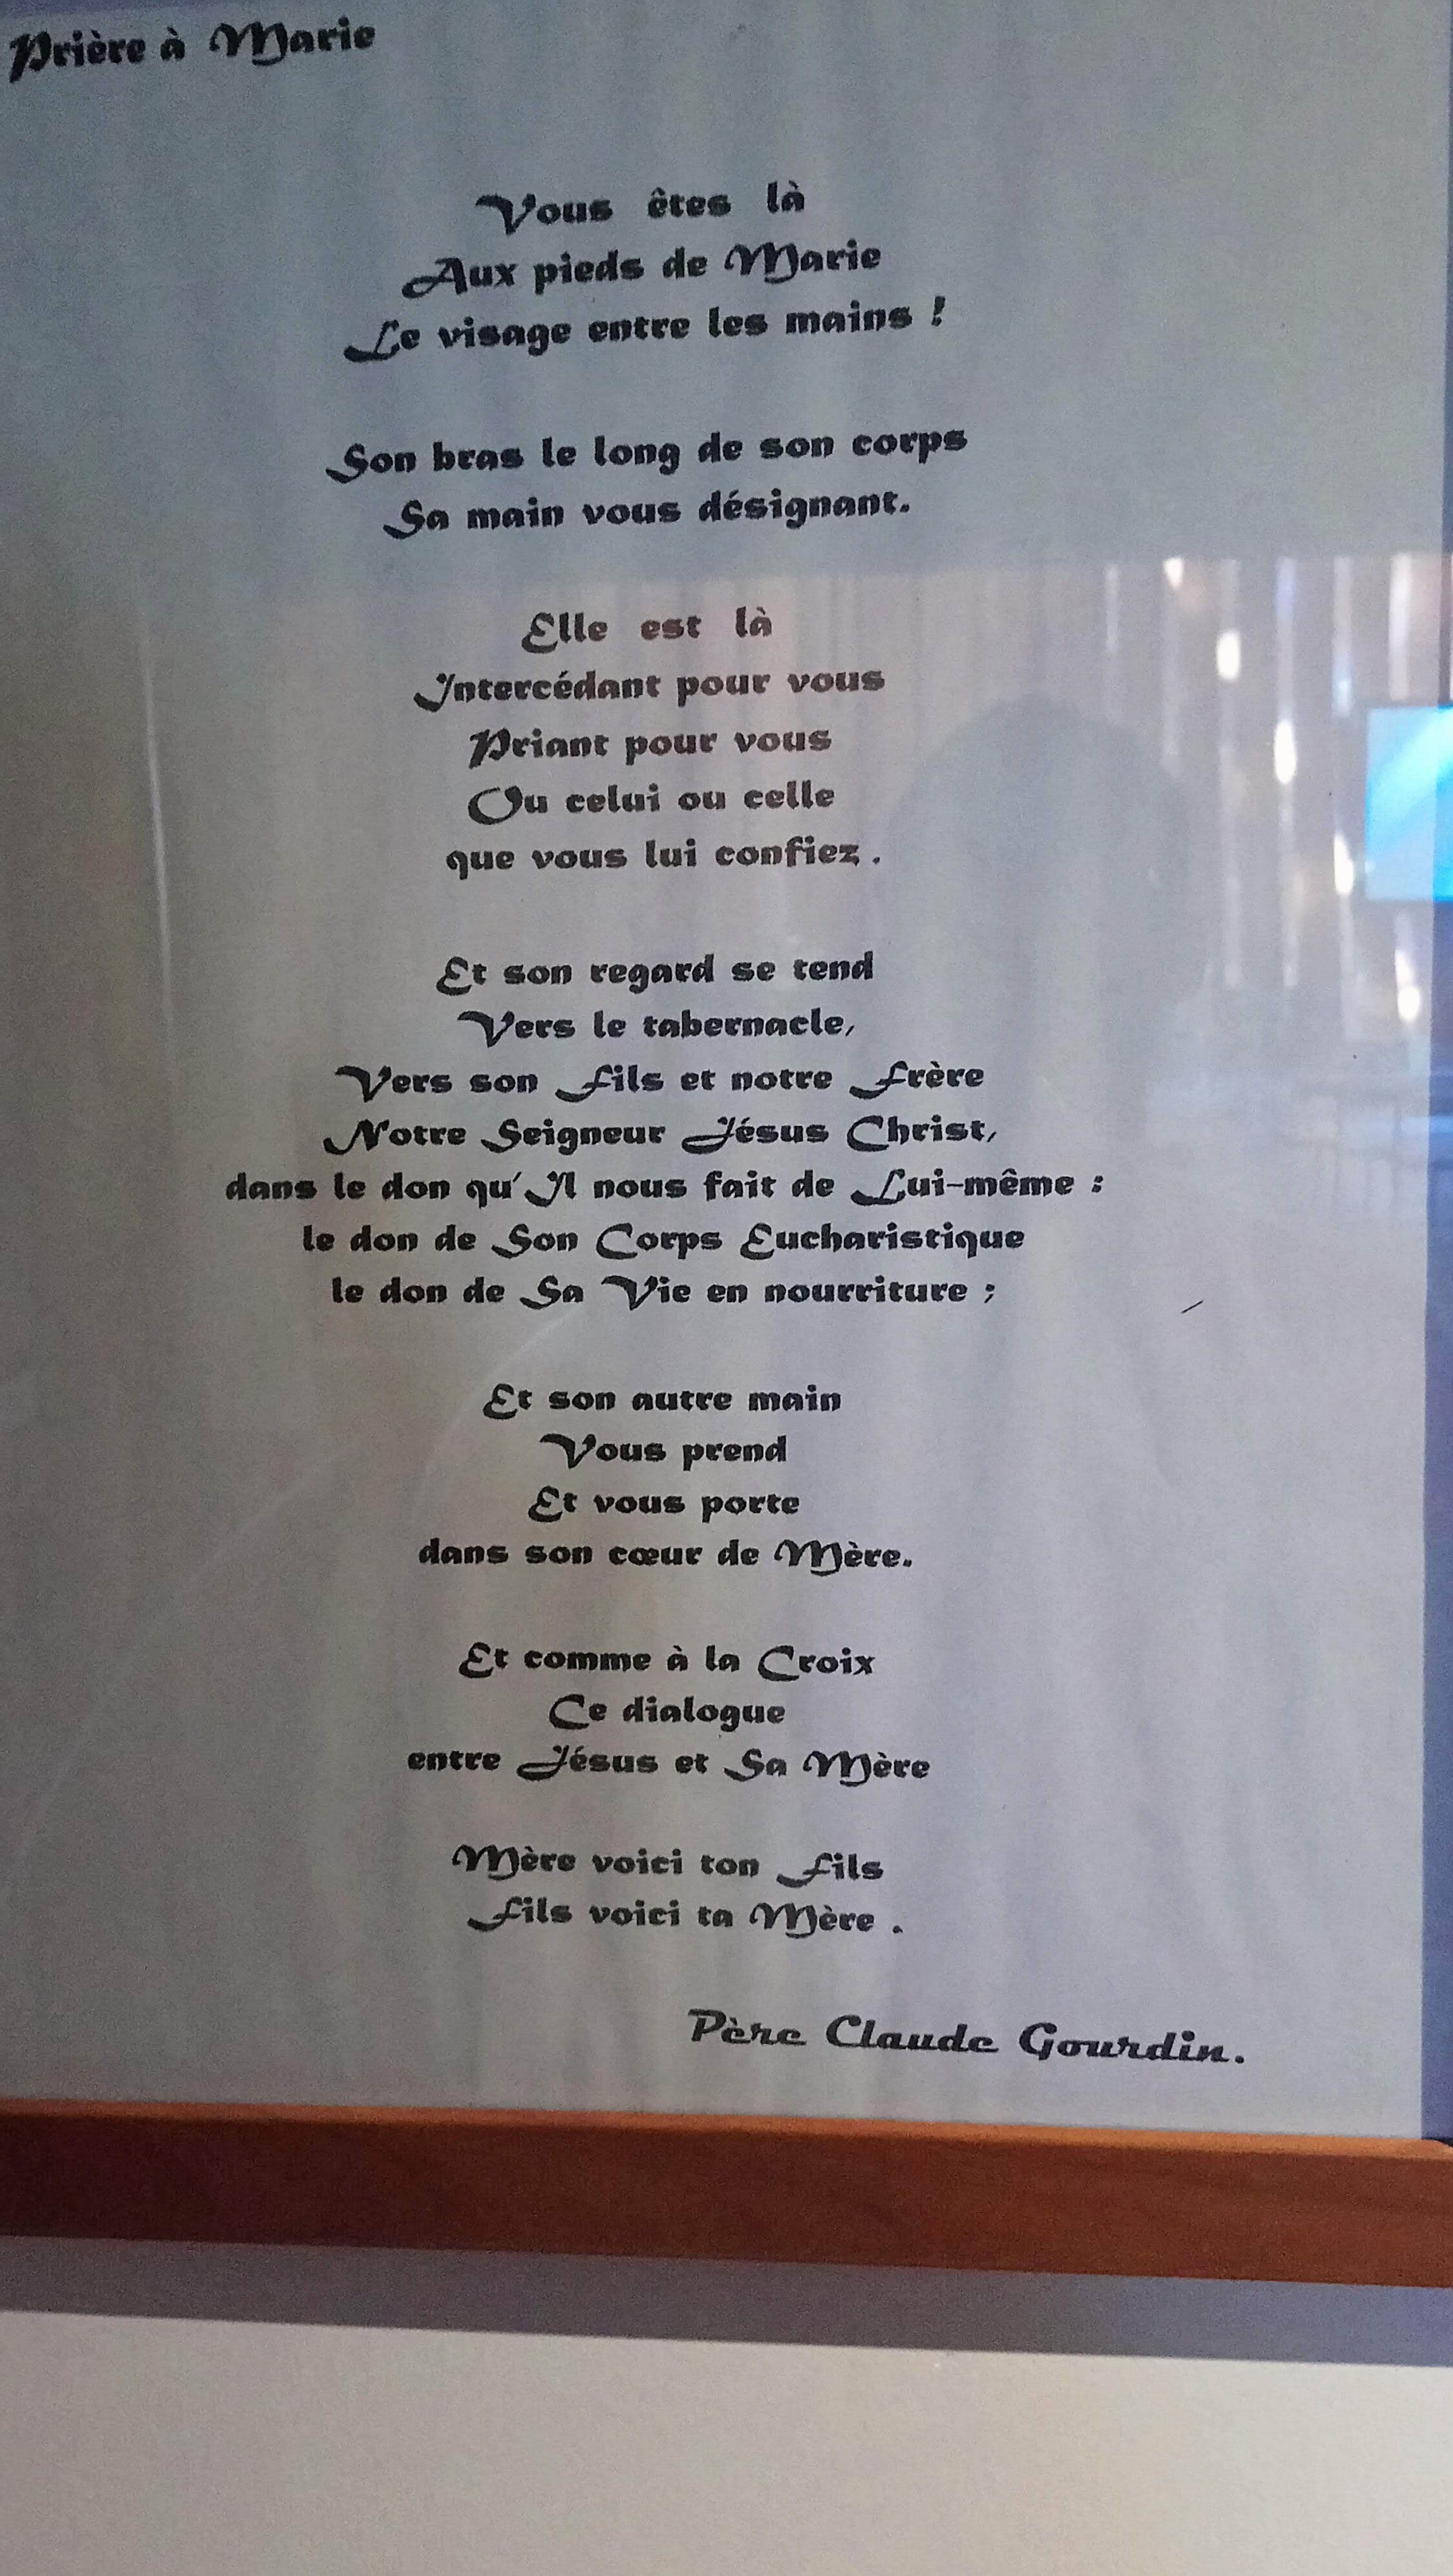 Prière à Marie
Vous êtes là
Aux pieds de Marie
Le visage entre les mains !
Son bras le long de son corps
Sa main vous désignant.
Elle est là
Intercédant pour vous
Priant pour vous
Ou celui ou celle
que vous lui confiez .
Et son regard se tend
Vers le tabernacle,
Vers son Fils et notre Frère
Notre Seigneur Jésus Christ,
dans le don qu'Il nous fait de Lui-même :
le don de Son Corps Eucharistique
le don de Sa Vie en nourriture ;
Et son autre main
Vous prend
Et vous porte
dans son cœur de Mère.
Et comme à la Croix
Ce dialogue
entre Jésus et Sa Mère
Mère voici ton Fils
Fils voici ta Mère .
Père Claude Gourdin.